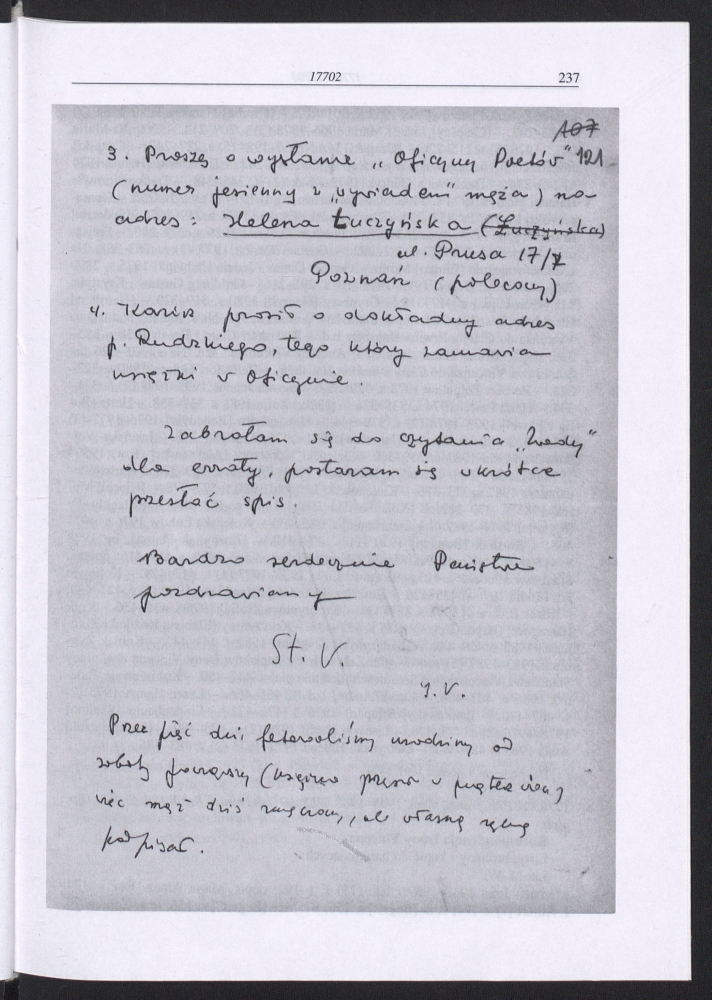 17702
237
107
3. Proszę o wysłanie „Oficyny Poetów" 121
(numer jesienny z „wywiadem" męża) na
adres: Helena Łuczyńska (Łuczyńska)
ul. Prusa 17/7
Poznań (polecony)
4. Kazio prosił o dokładny adres
p. Rudzkiego, tego który zamawia
książki w Oficynie.
Zabrałam się do czytania „Wody"
dla erraty, postaram się wkrótce
przesłać spis.
Bardzo serdecznie Państwa
pozdrawiamy
St. V.
Przez pięć dni fetowaliśmy urodziny od
soboty począwszy (książka przyszła w piątek
więc mąż dziś zmęczony, ale własną ręką
podpisał.